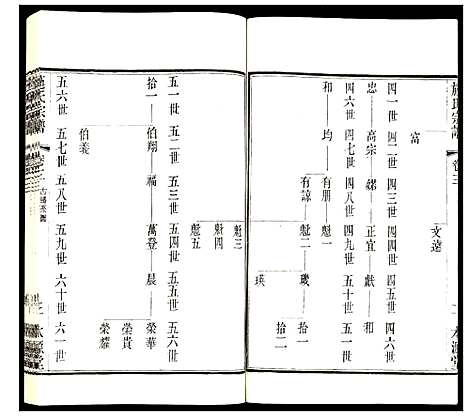 施氏宗譜 卷三
富 文遠
四一世 四二世 四三世 四四世 四五世 四六世
忠 高宗 緒 正宜 獻 和
四六世 四七世 四八世 四九世 五十世 五一世
和 均 有朋 魁一
有諒 魁二 璣 拾一
瑛 拾二
魁三
魁四
魁五
五一世 五二世 五三世 五四世 五五世 五六世
拾一 伯翔 福 萬登 晨 榮華
榮貴
伯義 榮耀
五六世 五七世 五八世 五九世 六十世 六一世